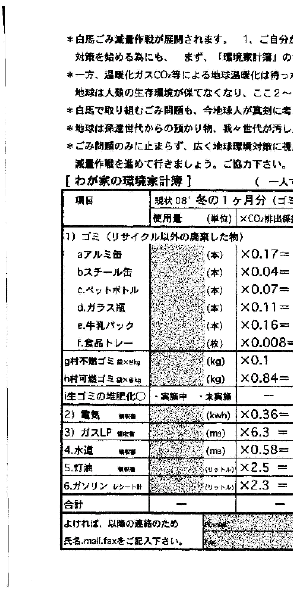 ＊白馬ごみ減量作戦が展開されます。 1、ご自分が
対策を始める為にも、 まず、「環境家計簿」の
＊一方、温暖化ガスCO₂等による地球温暖化は待った
地球は人類の生存環境が保てなくなり、ここ2～
＊白馬で取り組むごみ問題も、今地球人が真剣に考
＊地球は次世代からの預かり物、我々世代が汚し
＊ごみ問題のみに止まらず、広く地球環境対策に視
減量作戦を進めて行きましょう。ご協力下さい。
[ わが家の環境家計簿 ] ( 一人
項目 現状08' 冬の1ヶ月分（ゴミ
使用量 (単位) ×CO₂排出係
1) ゴミ（リサイクル以外の廃棄した物）
aアルミ缶 (本) ×0.17＝
bスチール缶 (本) ×0.04＝
c.ペットボトル (本) ×0.07＝
d.ガラス瓶 (本) ×0.11＝
e.牛乳パック (本) ×0.16＝
f.食品トレー (枚) ×0.008＝
g村不燃ゴミ (kg) ×0.1
h村可燃ゴミ (kg) ×0.84＝
i生ゴミの堆肥化○ ・実施中 ・未実施 －
2) 電気 (kwh) ×0.36＝
3) ガスLP (m3) ×6.3 ＝
4.水道 (m3) ×0.58＝
5.灯油 (リットル) ×2.5 ＝
6.ガソリン レシート計 (リットル) ×2.3 ＝
合計 － －
よければ、以降の連絡のため
氏名.mail.faxをご記入下さい。